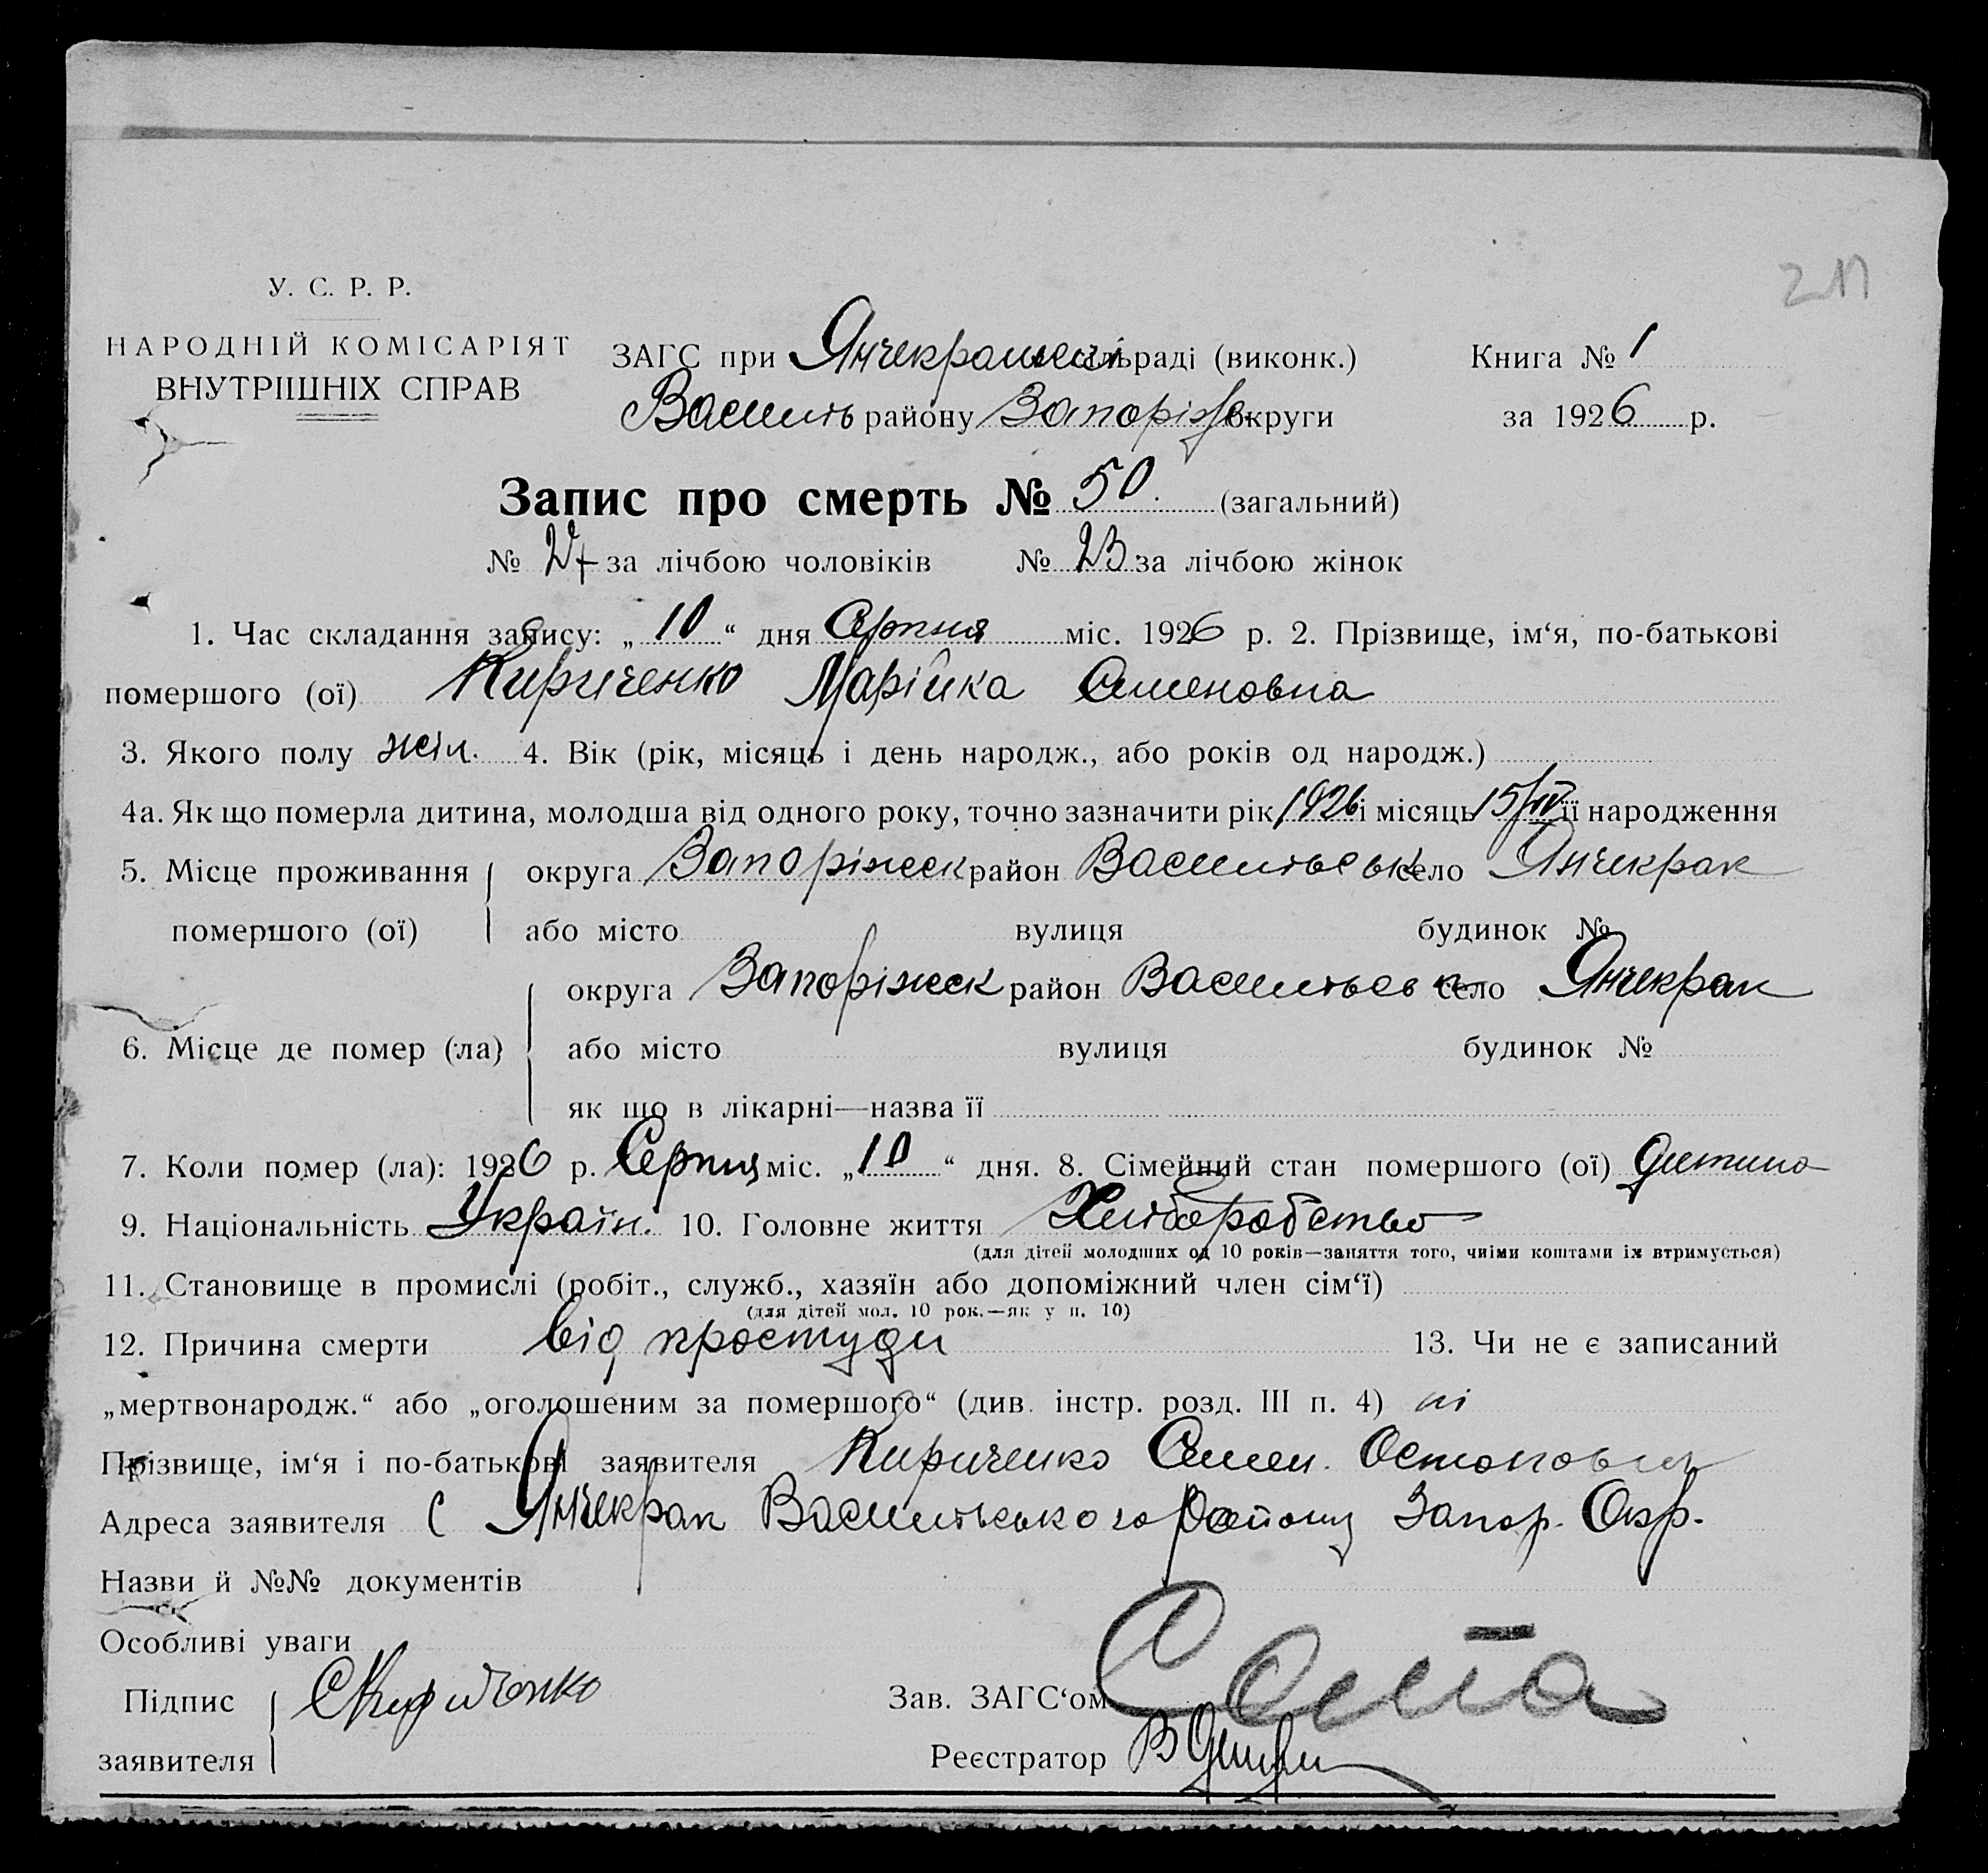 211
У. С. Р. Р.
НАРОДНІЙ КОМІСАРІЯТ
ВНУТРІШНІХ СПРАВ
ЗАГС при Янчекракській сільраді (виконк.) Книга № 1
Василь району Запоріж. округи за 1926 р.
Запис про смерть № 50. (загальний)
№ 27 за лічбою чоловіків № 23 за лічбою жінок
1. Час складання запису: „10“ дня Серпня міс. 1926 р. 2. Прізвище, ім‘я, по-батькові
помершого (ої) Кириченко Марійка Семеновна
3. Якого полу жін. 4. Вік (рік, місяць і день народж., або років од народж.)
4а. Як що померла дитина, молодша від одного року, точно зазначити рік 1926 і місяць 15/ її народження
5. Місце проживання округа Запоріжск район Васильевськ село Янчекрак
помершого (ої) або місто вулиця будинок №
округа Запоріжск район Васильевськ село Янчекрак
6. Місце де помер (ла) або місто вулиця будинок №
як що в лікарні—назва її
7. Коли помер (ла): 1926 р. Серпня міс. „10“ дня. 8. Сімейний стан помершого (ої) дитина
9. Національність Україн. 10. Головне життя Хліборобство
(для дітей молодших од 10 років—заняття того, чиїми коштами їх втримується)
11. Становище в промислі (робіт., служб., хазяїн або допоміжний член сім‘ї)
(для дітей мол. 10 рок.—як у п. 10)
12. Причина смерти від простуди 13. Чи не є записаний
„мертвонародж.“ або „оголошеним за помершого“ (див. інстр. розд. III п. 4) ні
Прізвище, ім‘я і по-батькові заявителя Кириченко Семен. Остапович
Адреса заявителя С Янчекрак Васильевського району Запор. Окр.
Назви й №№ документів
Особливі уваги
Підпис СКириченко Зав. ЗАГС‘ом
заявителя Реєстратор